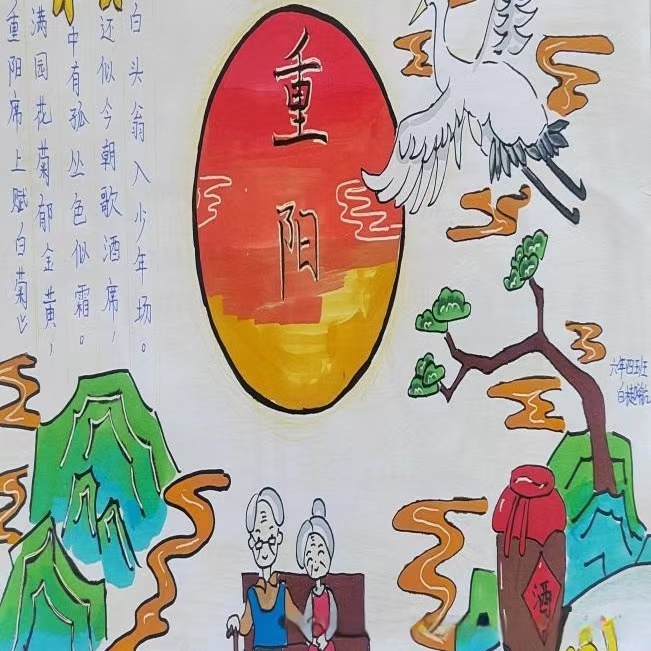 重阳席上赋白菊》
满园花菊郁金黄，
中有孤丛色似霜。
还似今朝歌酒席，
白头翁入少年场。
重
阳
六年四班
酒